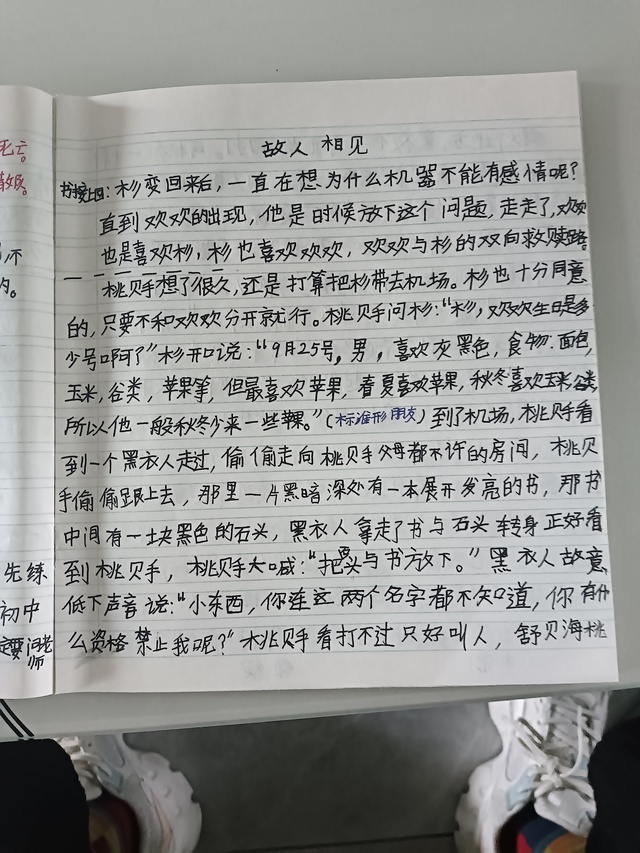 死亡。
散段。
不
的。
先练
初中
定要问老师
故人 相见
接上回：杉变回来后，一直在想为什么机器不能有感情呢？
直到欢欢的出现，他是时候放下这个问题，走走了，欢欢
也是喜欢杉，杉也喜欢欢欢，欢欢与杉的双向救赎路。
桃贝手想了很久，还是打算把杉带去机场。杉也十分同意
的，只要不和欢欢分开就行。桃贝手问杉：“杉，欢欢生日是多
少号啊了”杉开口说：“9月25号，男，喜欢灰黑色，食物：面包，
玉米，谷类，苹果等，但最喜欢苹果，春夏喜欢苹果，秋冬喜欢玉米谷类
所以他一般秋冬少来一些苹果。”（标准形朋友）到了机场，桃贝手看
到一个黑衣人走过，偷偷走向桃贝手父母都不许的房间，桃贝
手偷偷跟上去，那里一片黑暗深处有一本展开发亮的书，那书
中间有一块黑色的石头，黑衣人拿走了书与石头转身正好看
到桃贝手，桃贝手大喊：“把石头与书方放下。”黑衣人故意
低下声音说：“小东西，你连这两个名字都不知道，你有什
么资格禁止我呢？”桃贝手看打不过只好叫人，舒贝海桃